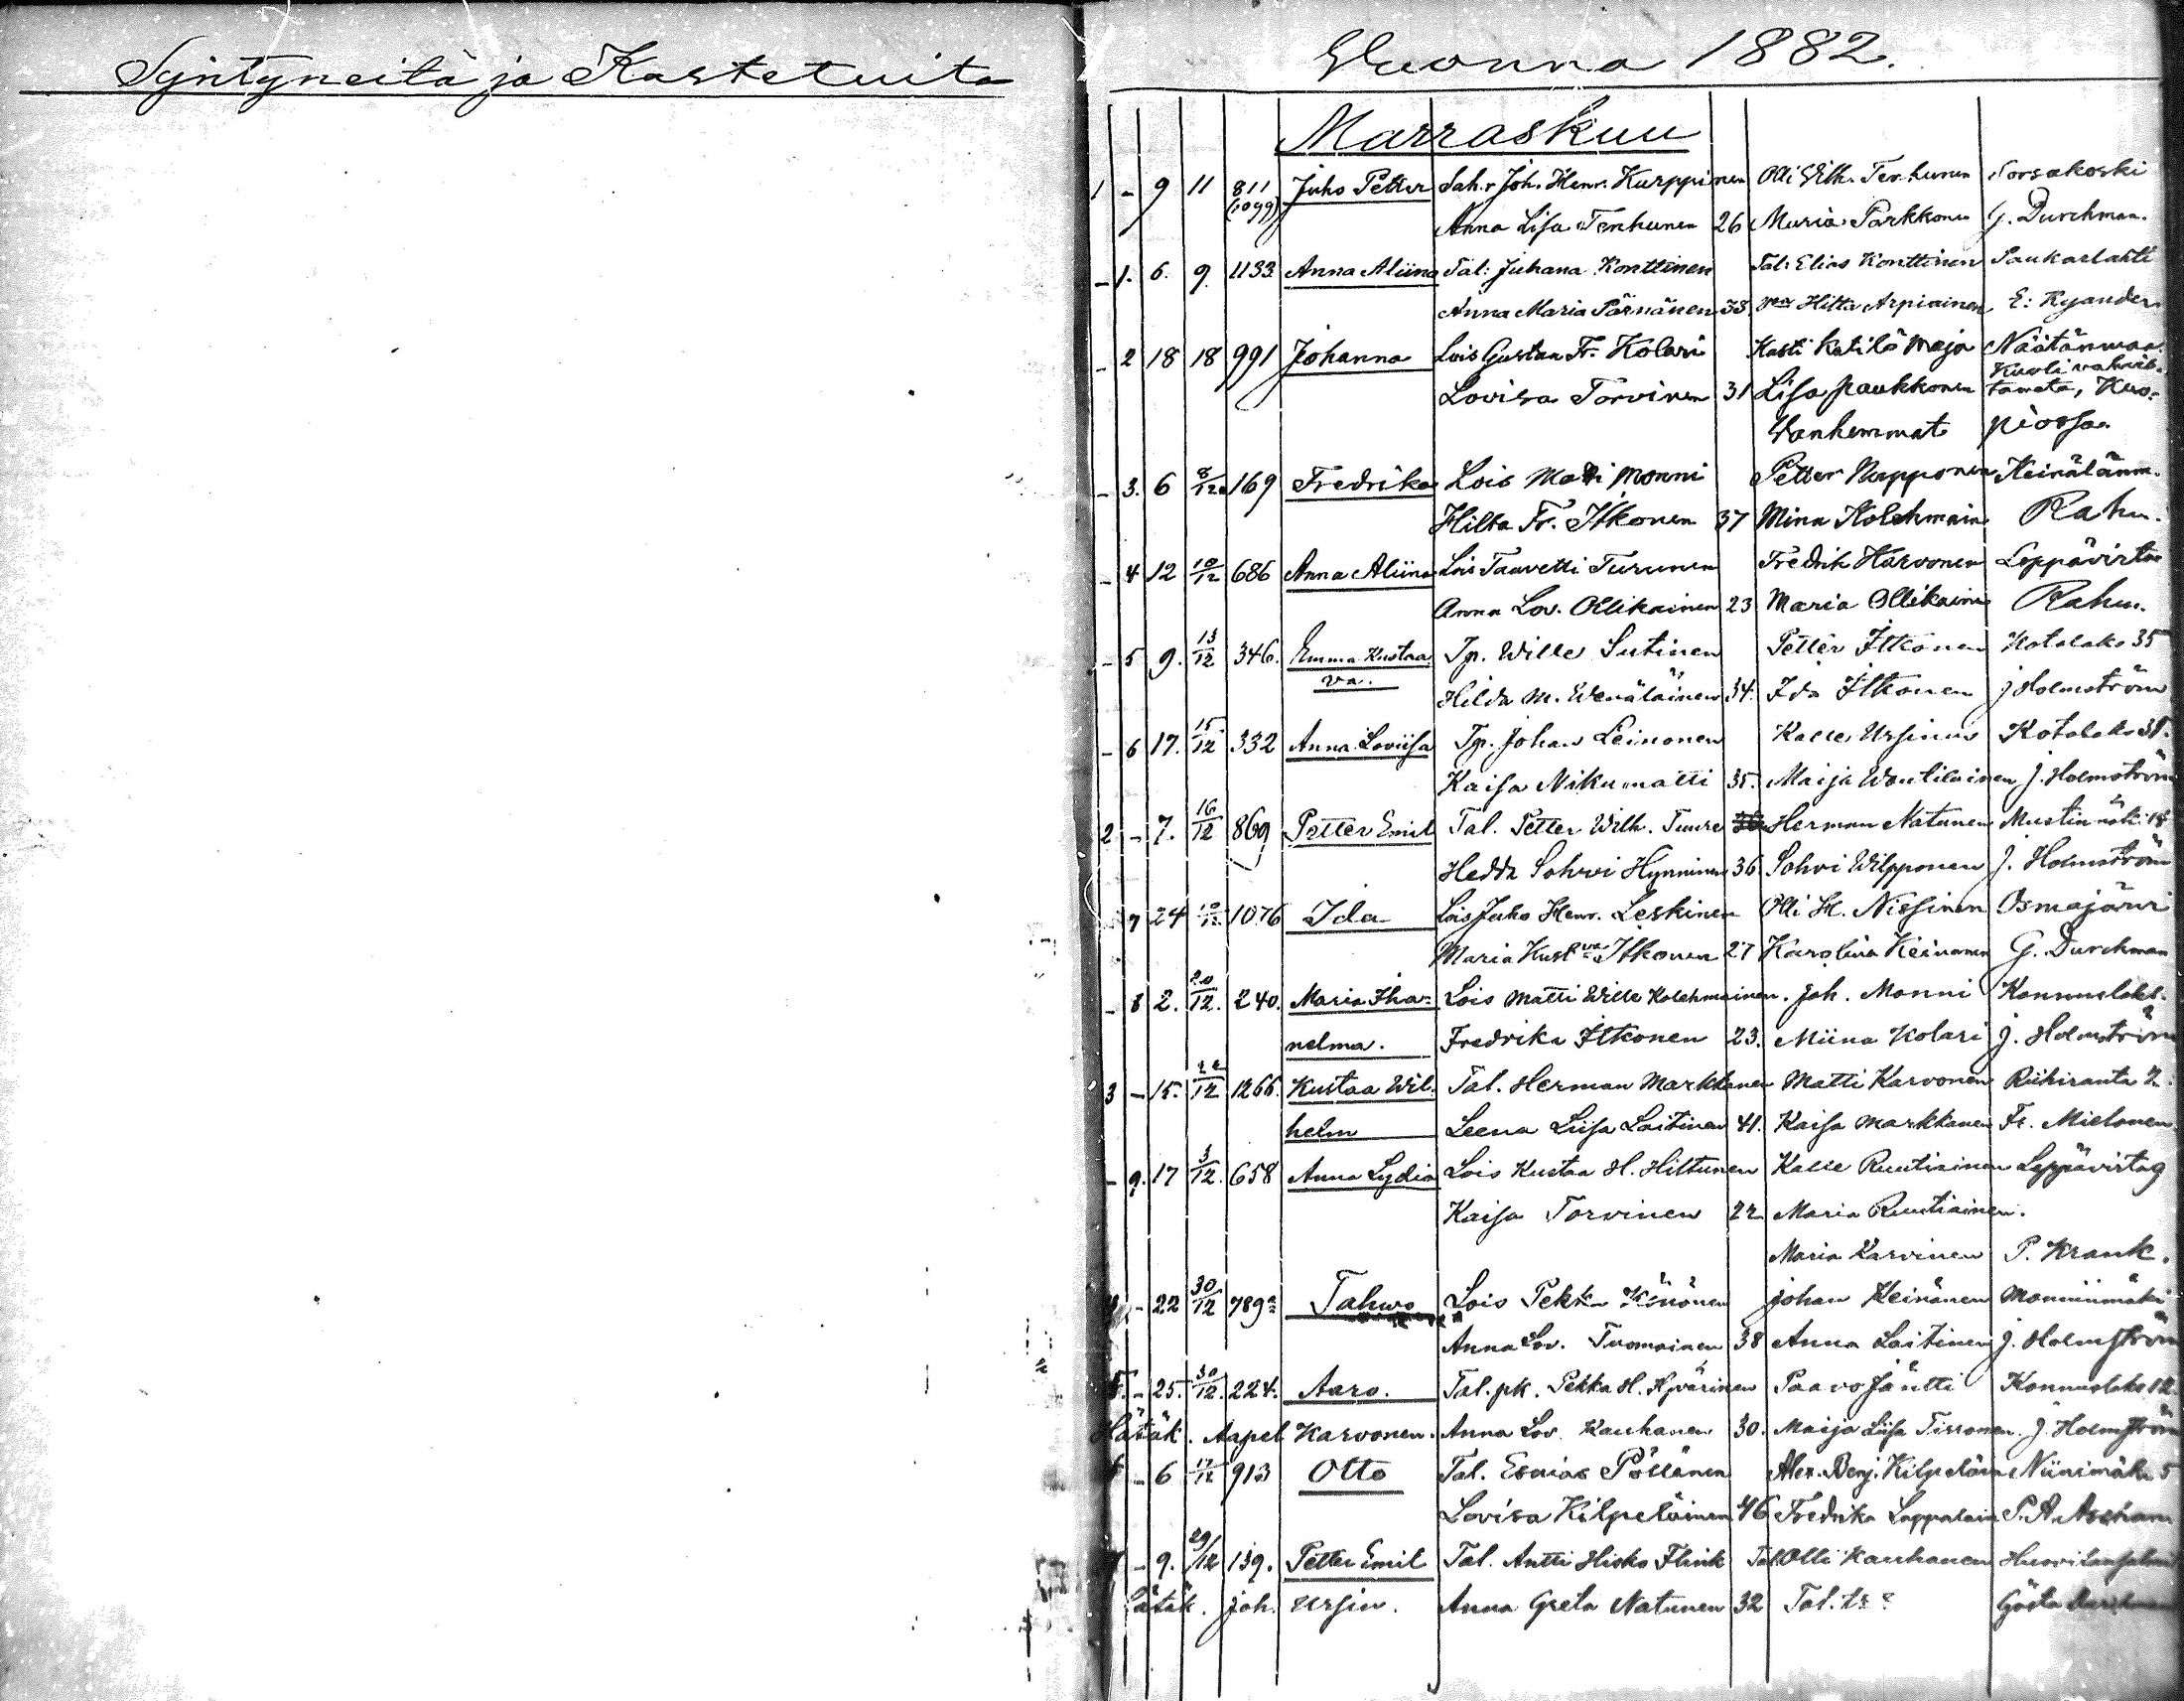 Syntyneitä ja Kastetuita
Vuonna 1882.
Marraskuu
1 - 9 11 811 Juho Petter Sah.r Joh. Henr. Kurppinen Olli Wilh. Tenhunen Sorsakoski
(1099) Anna Lisa Tenhunen 26 Maria Parkkonen G. Durchman.
- 1. 6. 9. 1133 Anna Aliina Tal: Juhana Konttinen Tal: Elias Konttinen Saukarlahti
Anna Maria Pärnänen 33 v:a Hilta Arpiainen E: Kyander
- 2 18 18 991 Johanna Lois Gustaa Fr. Kolari Kasti Katilö Maja Näätänmaa.
Kuoli vahvis-
Lovisa Torvinen 31 Lisa Paukkonen tamata, Kuo-
Vanhemmat piossa.
- 3. 6 8/12 169 Fredrika Lois Matti Monni Petter Nupponen Keinälänm.
Hilta Fr. Itkonen 37 Mina Kolehmain Rahu.
- 4 12 10/12 686 Anna Aliina Lois Taavetti Turunen Fredrik Karvonen Leppävirta
Anna Lov. Ollikainen 23 Maria Ollikainen Rahu.
- 5 9. 13/12 346. Emma Kustaa Tp. Wille Sutinen Petter Itkonen Kotalaks 35
va. Hilda M. Wenäläinen 34. Ida Itkonen J Holmström
- 6 17. 15/12 332 Anna Loviisa Tp. Johan Leinonen Kalle Ursinus Kotalaks 31.
Kaisa Nikumatti 35. Maija Woutilainen J. Holmström
2 - 7. 16/12 869 Petter Emil Tal. Petter Wilh. Tuure Herman Natunen Mustinmäki 18
Hedda Sohvi Hynninen 36 Sohvi Wilpponen J. Holmström
7 24 10/12 1076 Ida Lois Juho Henr. Leskinen Olli H. Nissinen Osmajärvi
Maria Kust:va Itkonen 27 Karolina Keinonen G. Durchman
- 8 2. 20/12. 240. Maria Iha= Lois Matti Wille Kolehmainen. Joh. Monni Konnuslaks.
nelma. Fredrika Itkonen 23. Miina Kolari J. Holmström
3 - 15. 22/12 1266. Kustaa Wil. Tal. Herman Markkanen Matti Karvonen Riihiranta 2.
helm Leena Liisa Laitinen 41. Kaisa Markkanen Fr. Mielonen.
- 9. 17 3/12. 658 Anna Lydia Lois Kustaa H. Hiltunen Kalle Ruutiainen Leppävirta 9
Kaisa Torvinen 22 Maria Ruutiainen.
Maria Karvinen P. Krank.
- 22 30/12 789 Tahvo Lois Pekka Könönen Johan Keinänen Monninmäki
Anna Lov. Tuomainen 38 Anna Laitinen J. Holmström
5. - 25. 30/12. 224. Aaro. Tal. pk. Pekka H. Hyvärinen Paavo Jäntti Konnuslaks 12
Hätäk. Aapel Karvonen. Anna Lov. Kauhanen 30. Maija Liisa Tissonen. J. Holmström
6 - 6 17/12 913 Otto Tal. Esaias Pöllänen Alex. Benj. Kilpeläin Niinimäki 5
Lovisa Kilpeläinen 46 Fredrika Lappalain P. A.
- 9. 29/12 139. Petter Emil Tal. Antti Hisko Flink Tal Olli Kauhanen
Hätäk. Joh. Ursin. Anna Greta Natunen 32 Tal. tr Gösta